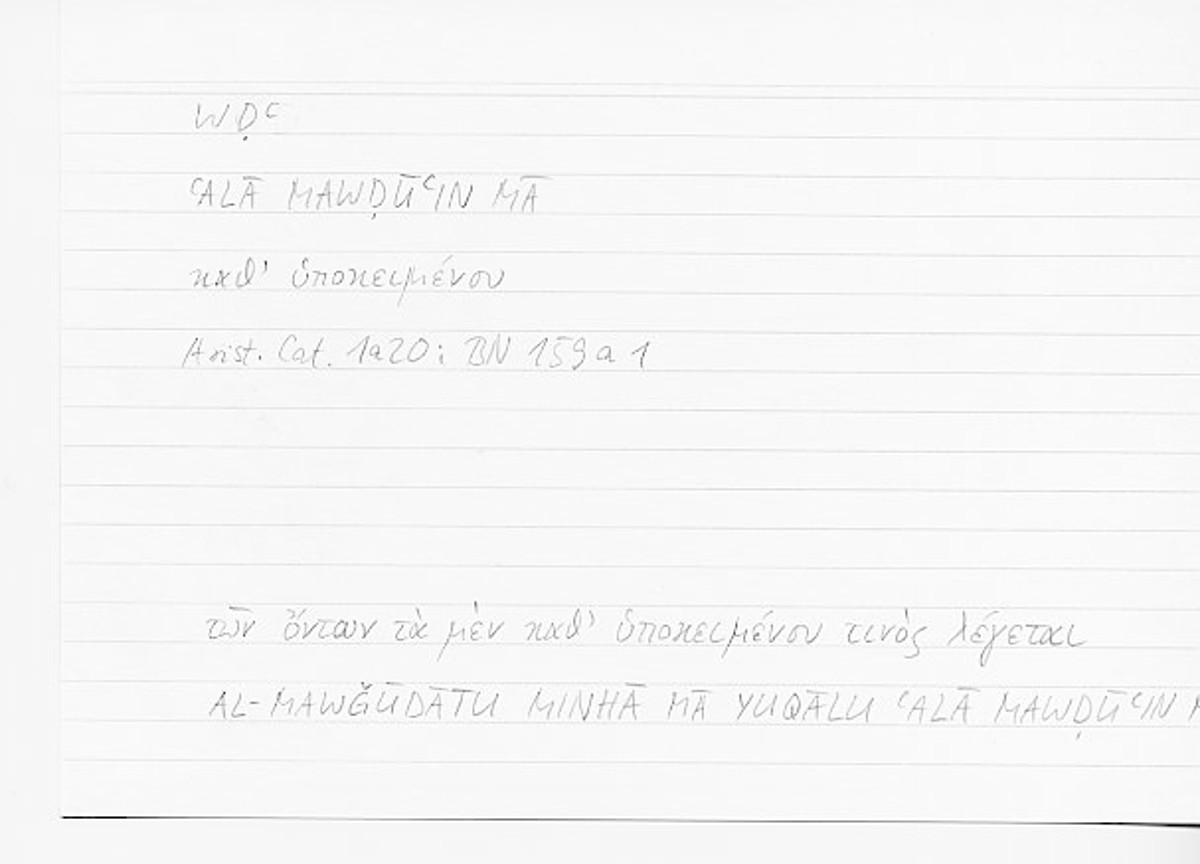 WḌʿ
ʿALĀ MAWḌŪʿIN MĀ
καθ' ὑποκειμένου
Arist. Cat. 1a20; BN 159a1
τῶν ὄντων τὰ μὲν καθ' ὑποκειμένου τινὸς λέγεται
AL-MAWǦŪDĀTU MINHĀ MĀ YUQĀLU ʿALĀ MAWḌŪʿIN